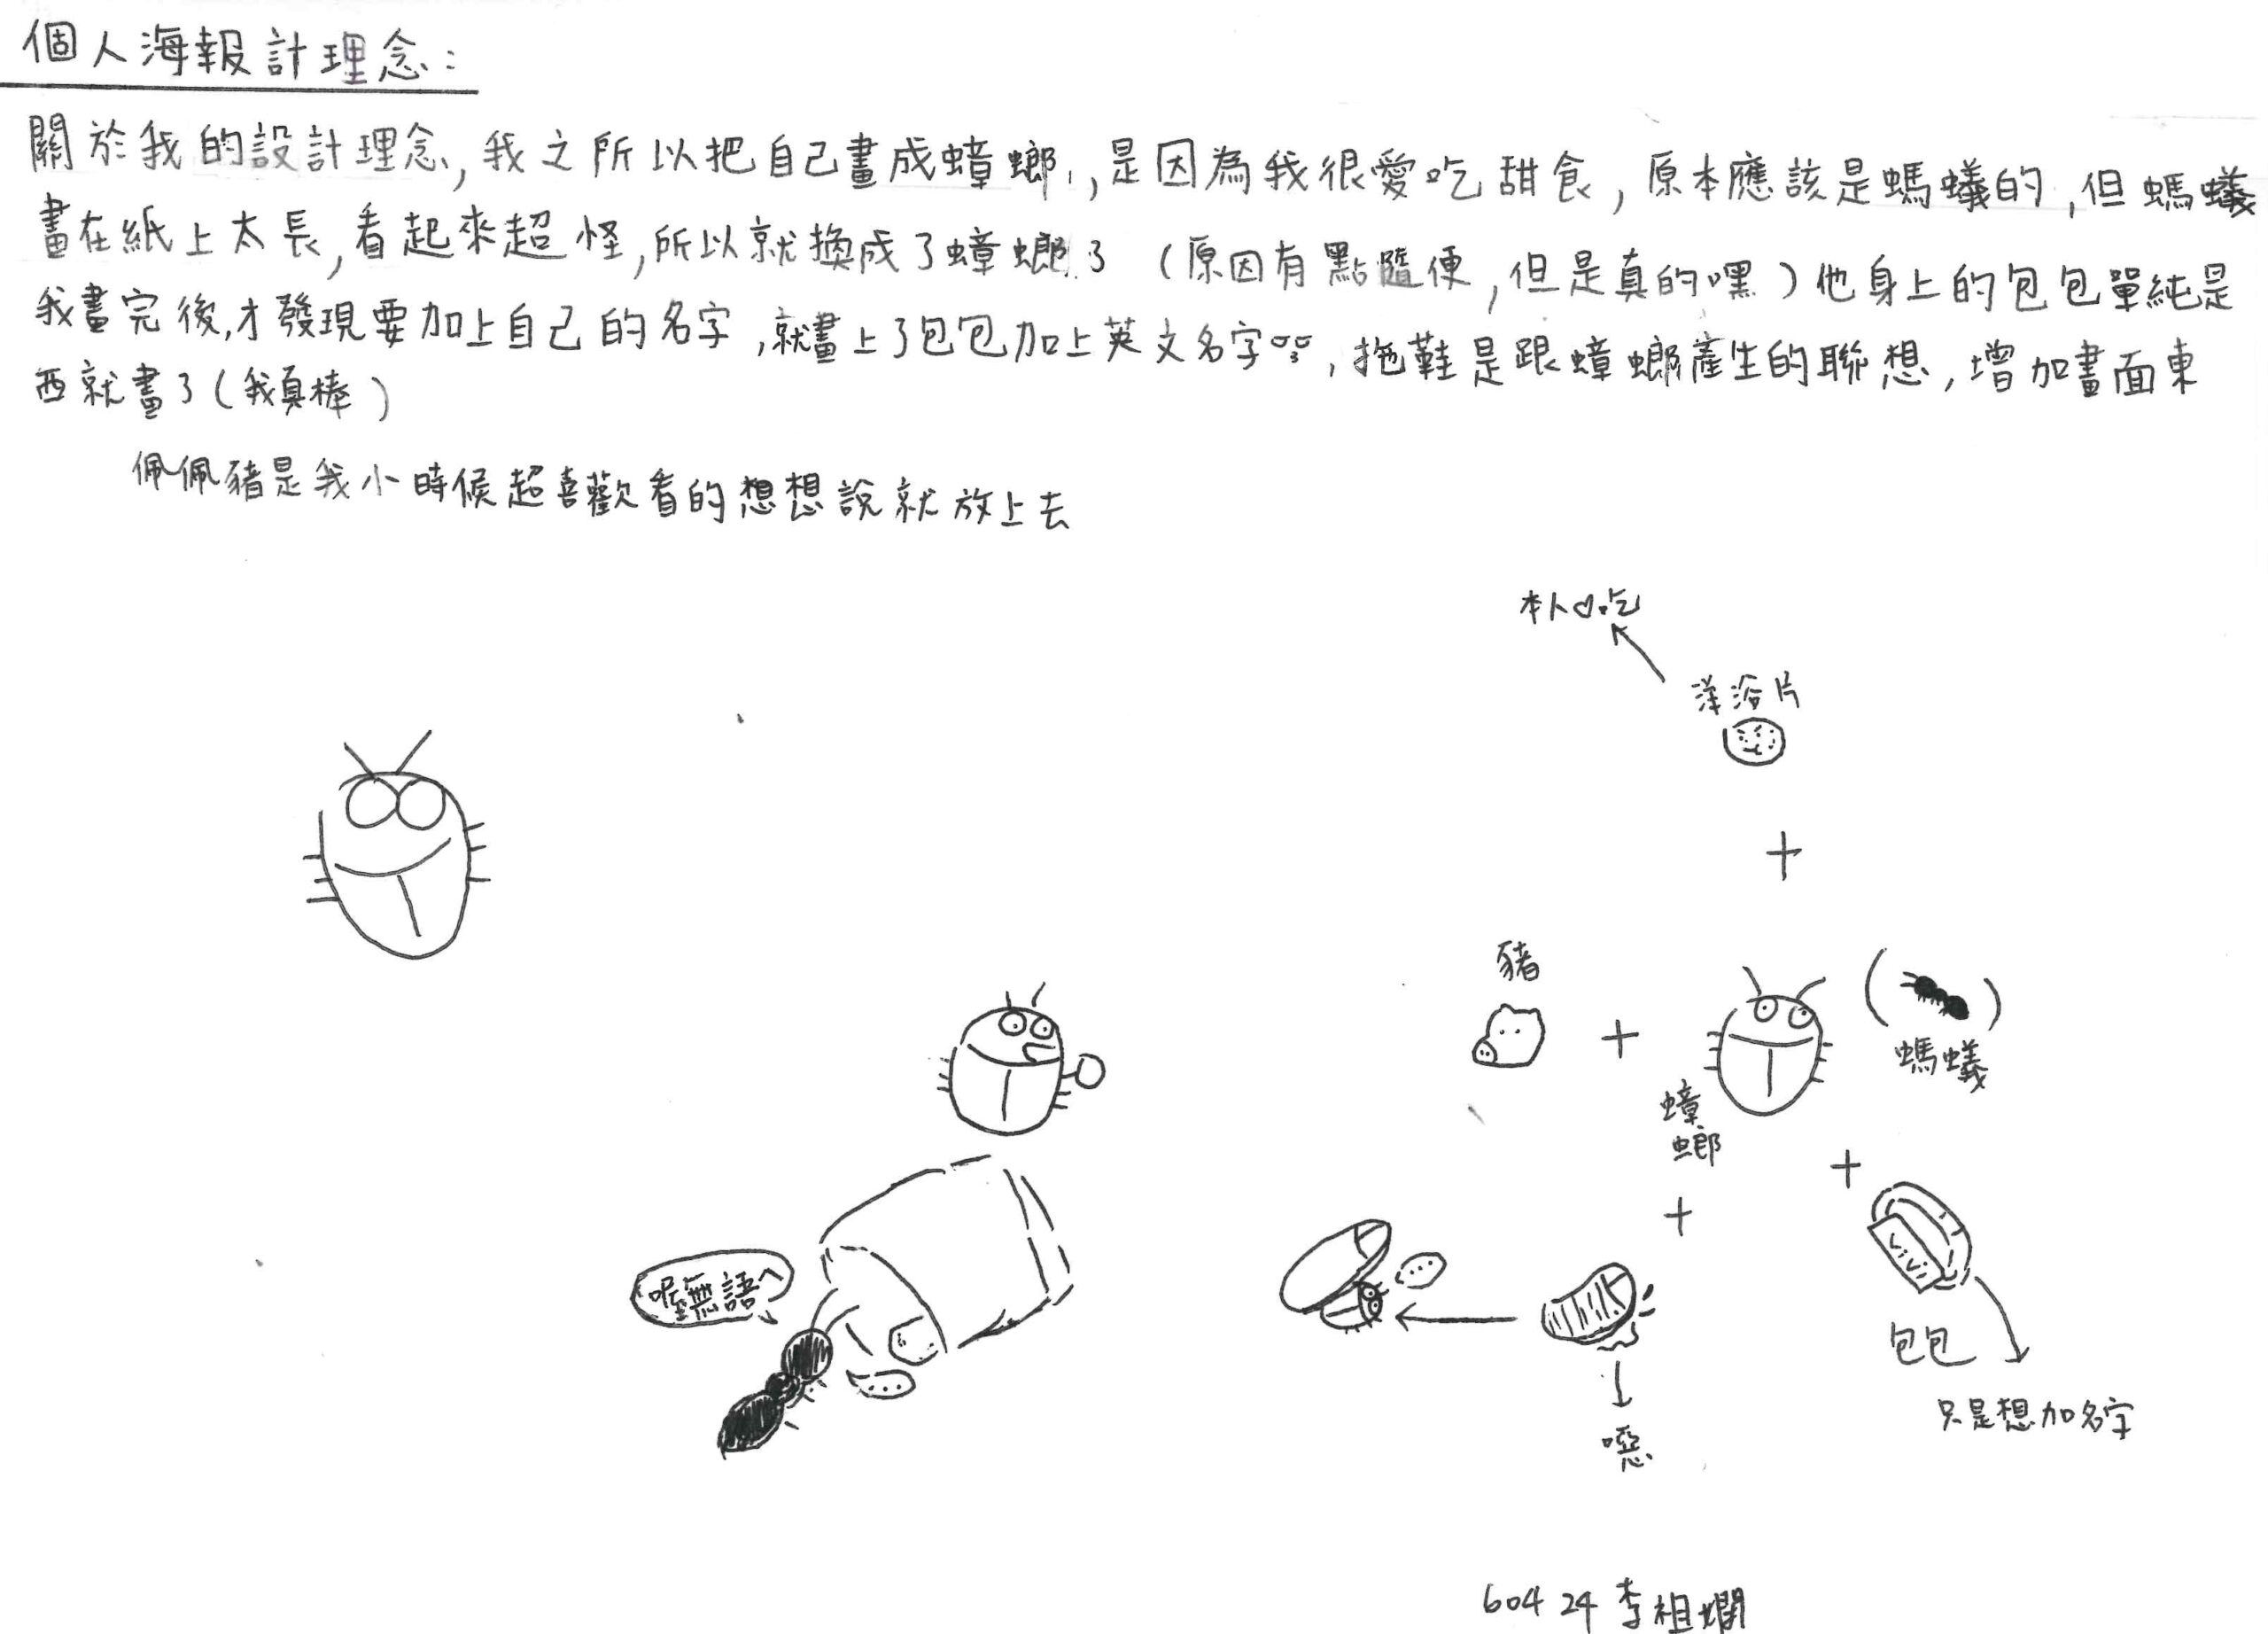 個人海報計理念:
關於我的設計理念,我之所以把自己畫成蟑螂,是因為我很愛吃甜食,原本應該是螞蟻的,但螞蟻
畫在紙上太長,看起來超怪,所以就換成了蟑螂了(原因有點隨便,但是真的嘿)他身上的包包單純是
我畫完後,才發現要加上自己的名字,就畫上了包包加上英文名字,拖鞋是跟蟑螂產生的聯想,增加畫面東
西就畫了(我真棒)
佩佩豬是我小時候超喜歡看的想想說就放上去
本人♡吃
洋浴片
+
豬
+
(
)
螞蟻
蟑
螂
+
+
喔無語
...
...
Livi
包包
只是想加名字
噁
604 24 李祖嫻